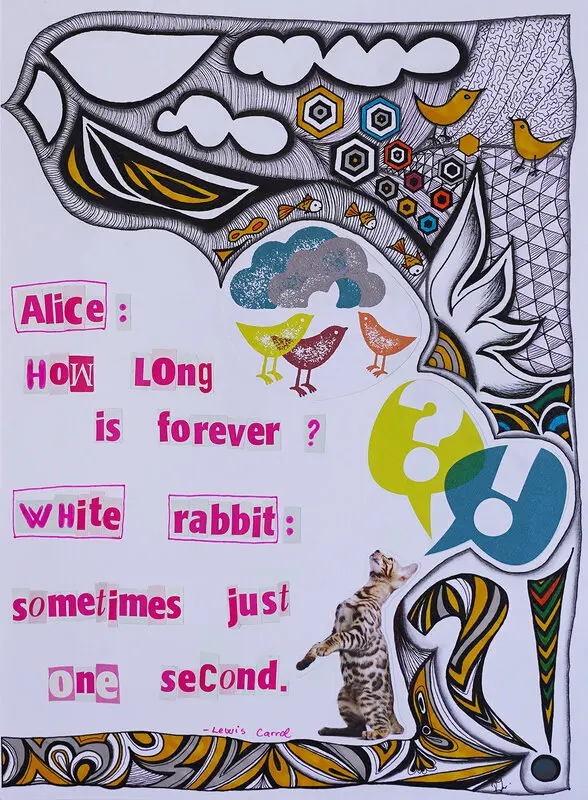 Alice:
HoW LOng
is forever ?
WHite rabbit:
sometimes just
one seCond.
- Lewis Carrol
? !